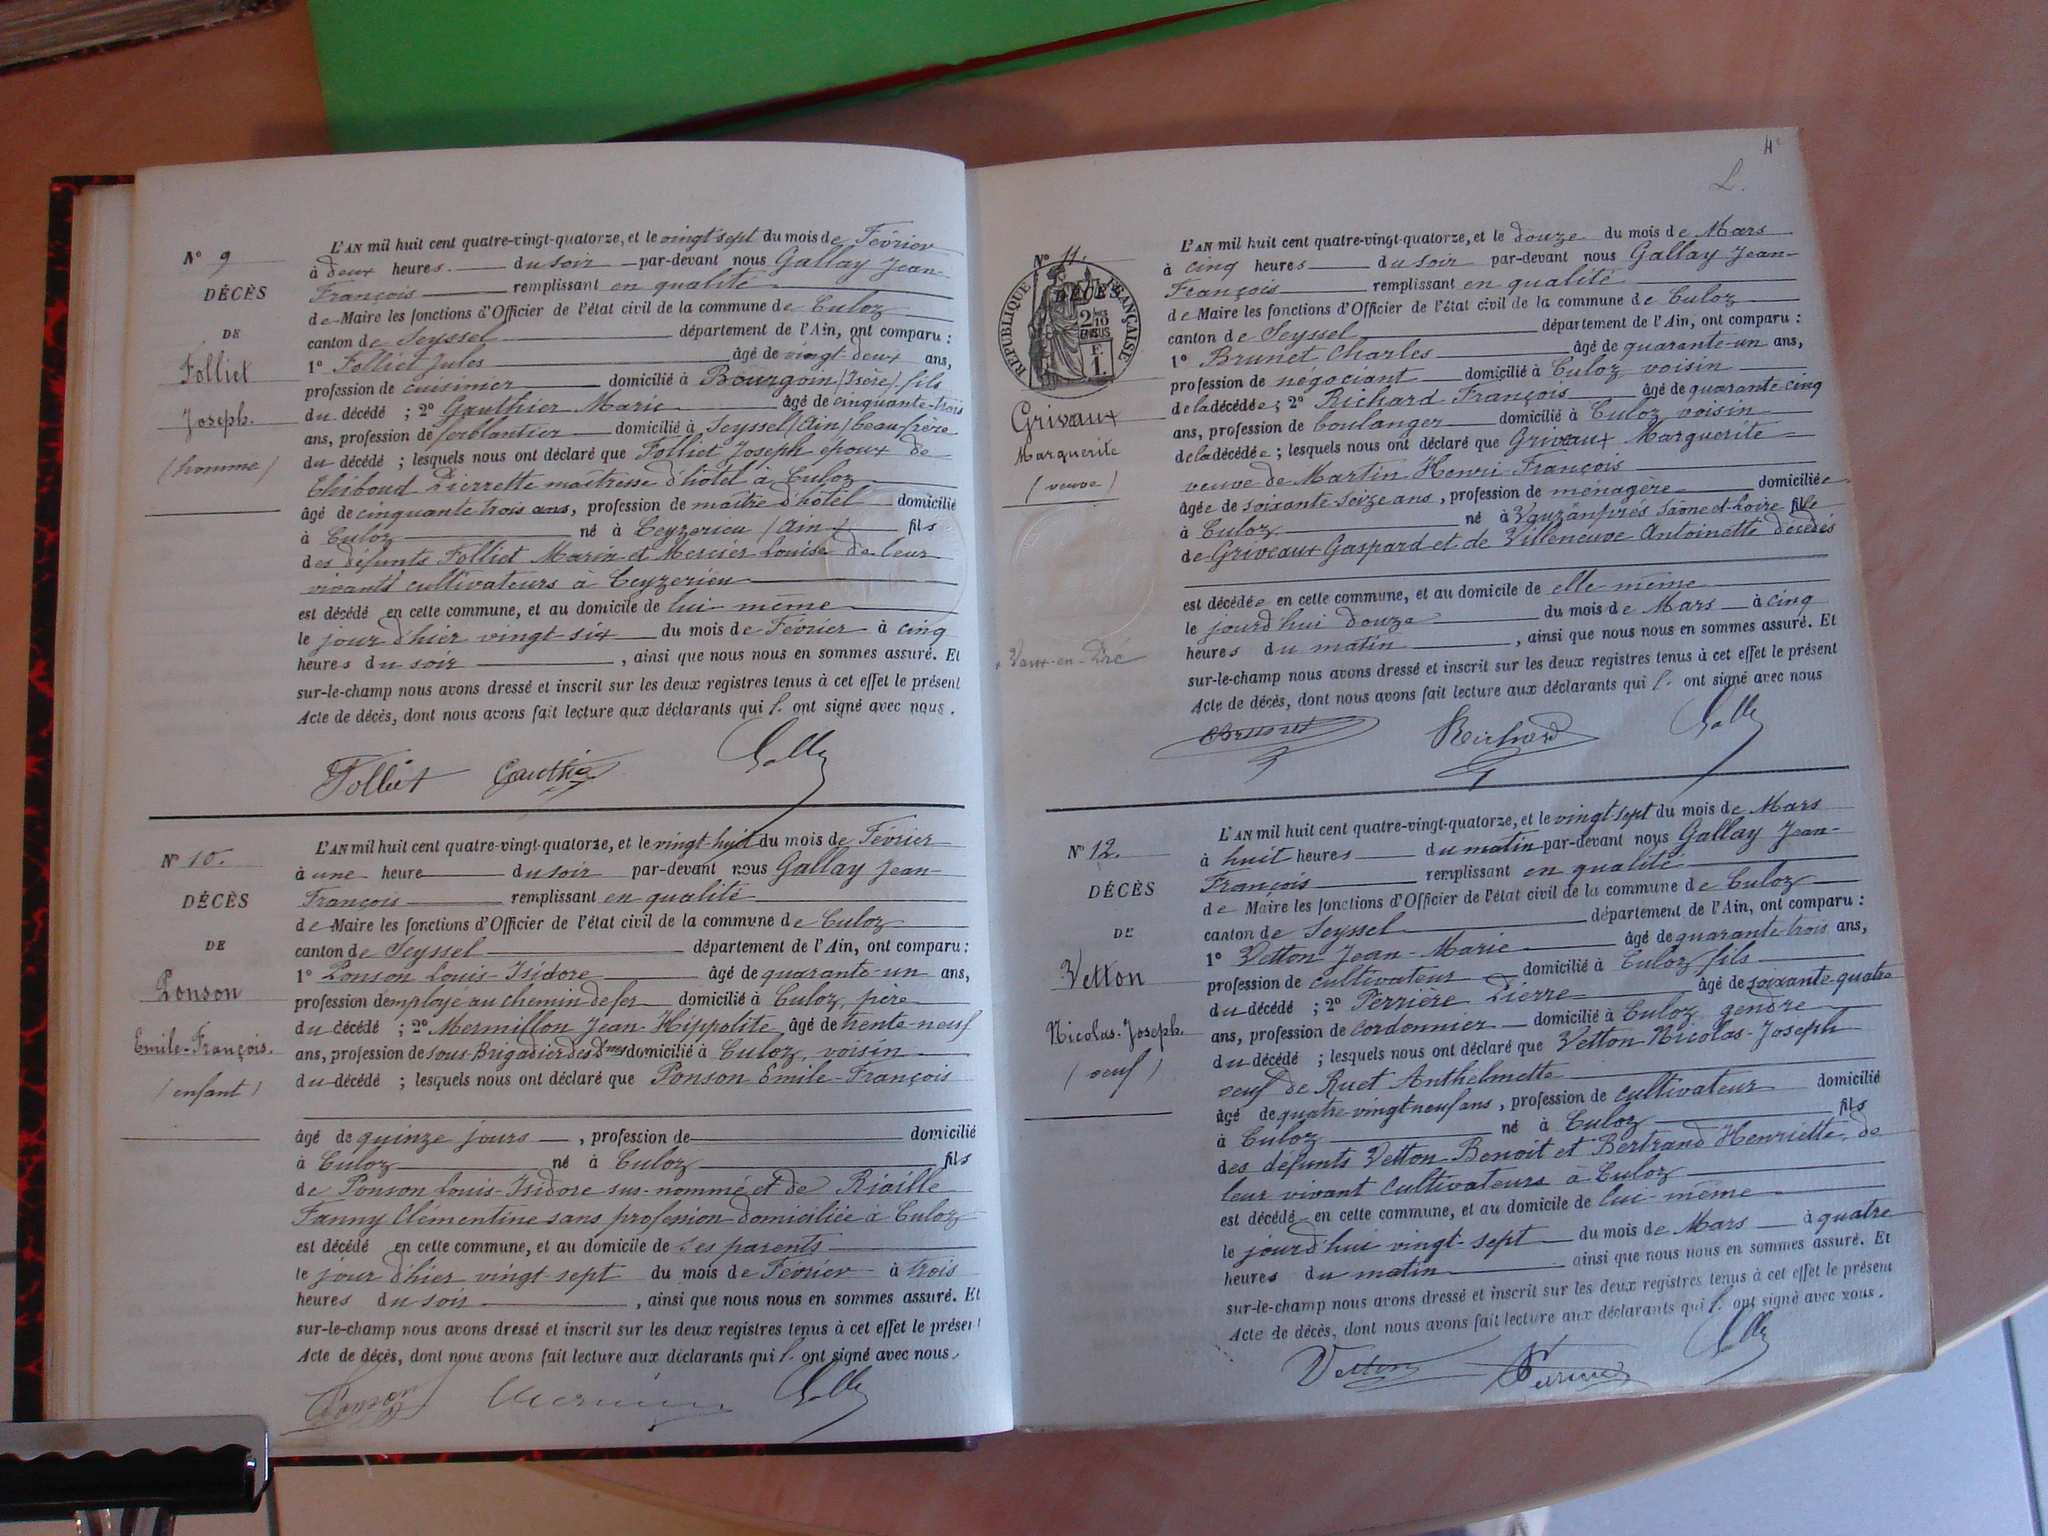 N° 9
DÉCÈS
DE
Folliet
Joseph.
(homme)
L'AN mil huit cent quatre-vingt-quatorze, et le vingt-sept du mois de Février
à deux heures du soir par-devant nous Gallay Jean-
François remplissant en qualité
de Maire les fonctions d'Officier de l'état civil de la commune de Culoz
canton de Seyssel département de l'Ain, ont comparu :
1° Folliet Jules âgé de vingt-deux ans,
profession de cuisinier domicilié à Bourgoin (Isère) fils
du décédé ; 2° Gauthier Marie âgé de cinquante-trois
ans, profession de ferblantier domicilié à Seyssel (Ain) beau-frère
du décédé ; lesquels nous ont déclaré que Folliet Joseph époux de
Thiboud Pierrette maîtresse d'hôtel à Culoz
âgé de cinquante trois ans, profession de maître d'hôtel domicilié
à Culoz né à Ceyzerieu (Ain) fils
des défunts Folliet Marin et Mercier Louise de leur
vivants cultivateurs à Ceyzerieu
est décédé en cette commune, et au domicile de lui-même
le jour d'hier vingt six du mois de Février à cinq
heures du soir , ainsi que nous nous en sommes assuré. Et
sur-le-champ nous avons dressé et inscrit sur les deux registres tenus à cet effet le présent
Acte de décès, dont nous avons fait lecture aux déclarants qui l' ont signé avec nous.
Folliet Gauthier Gallay
N° 10.
DÉCÈS
DE
Ponson
Emile-François.
(enfant)
L'AN mil huit cent quatre-vingt-quatorze, et le vingt-huit du mois de Février
à une heure du soir par-devant nous Gallay Jean-
François remplissant en qualité
de Maire les fonctions d'Officier de l'état civil de la commune de Culoz
canton de Seyssel département de l'Ain, ont comparu :
1° Ponson Louis-Isidore âgé de quarante-un ans,
profession d'employé au chemin de fer domicilié à Culoz, père
du décédé ; 2° Mermillon Jean-Hippolite, âgé de trente-neuf
ans, profession de sous-Brigadier des Dnes domicilié à Culoz, voisin
du décédé ; lesquels nous ont déclaré que Ponson Emile-François
âgé de quinze jours , profession de domicilié
à Culoz né à Culoz fils
de Ponson Louis-Isidore sus-nommé et de Riaille
Fanny Clémentine sans profession domiciliée à Culoz
est décédé en cette commune, et au domicile de ses parents
le jour d'hier vingt sept du mois de Février à trois
heures du soir , ainsi que nous nous en sommes assuré. Et
sur-le-champ nous avons dressé et inscrit sur les deux registres tenus à cet effet le présent
Acte de décès, dont nous avons fait lecture aux déclarants qui l' ont signé avec nous.
Ponson Gallay
4e
L.
N° 11.
DÉCÈS
RÉPUBLIQUE FRANÇAISE
F.
1.
Grivaux
Marguerite
(veuve)
Vaux-en-Pré
L'AN mil huit cent quatre-vingt-quatorze, et le douze du mois de Mars
à cinq heures du soir par-devant nous Gallay Jean-
François remplissant en qualité
de Maire les fonctions d'Officier de l'état civil de la commune de Culoz
canton de Seyssel département de l'Ain, ont comparu :
1° Brunet Charles âgé de quarante-un ans,
profession de négociant domicilié à Culoz voisin
de la décédée ; 2° Richard François âgé de quarante cinq
ans, profession de boulanger domicilié à Culoz voisin
de la décédée ; lesquels nous ont déclaré que Griveaux Marguerite
veuve de Martin Henri François
âgée de soixante-seize ans , profession de ménagère domiciliée
à Culoz né à Vauzanprés Saône-et-Loire fille
de Griveaux Gaspard et de Villeneuve Antoinette décédés
est décédée en cette commune, et au domicile de elle-même
le jourd'hui douze du mois de Mars à cinq
heures du matin , ainsi que nous nous en sommes assuré. Et
sur-le-champ nous avons dressé et inscrit sur les deux registres tenus à cet effet le présent
Acte de décès, dont nous avons fait lecture aux déclarants qui l' ont signé avec nous
Brunet Richard Gallay
N° 12.
DÉCÈS
DE
Vetton
Nicolas-Joseph.
(veuf)
L'AN mil huit cent quatre-vingt-quatorze, et le vingt-sept du mois de Mars
à huit heures du matin par-devant nous Gallay Jean-
François remplissant en qualité
de Maire les fonctions d'Officier de l'état civil de la commune de Culoz
canton de Seyssel département de l'Ain, ont comparu :
1° Vetton Jean-Marie âgé de quarante-trois ans,
profession de cultivateur domicilié à Culoz fils
du décédé ; 2° Perrière Pierre âgé de soixante quatre
ans, profession de cordonnier domicilié à Culoz gendre
du décédé ; lesquels nous ont déclaré que Vetton Nicolas-Joseph
veuf de Ruet Anthelmette
âgé de quatre-vingt-neuf ans , profession de cultivateur domicilié
à Culoz né à Culoz fils
des défunts Vetton Benoit et Bertrand Henriette, de
leur vivant cultivateurs à Culoz
est décédé en cette commune, et au domicile de lui-même
le jourd'hui vingt-sept du mois de Mars à quatre
heures du matin ainsi que nous nous en sommes assuré. Et
sur-le-champ nous avons dressé et inscrit sur les deux registres tenus à cet effet le présent
Acte de décès, dont nous avons fait lecture aux déclarants qui l' ont signé avec nous.
Vetton Perrière Gallay